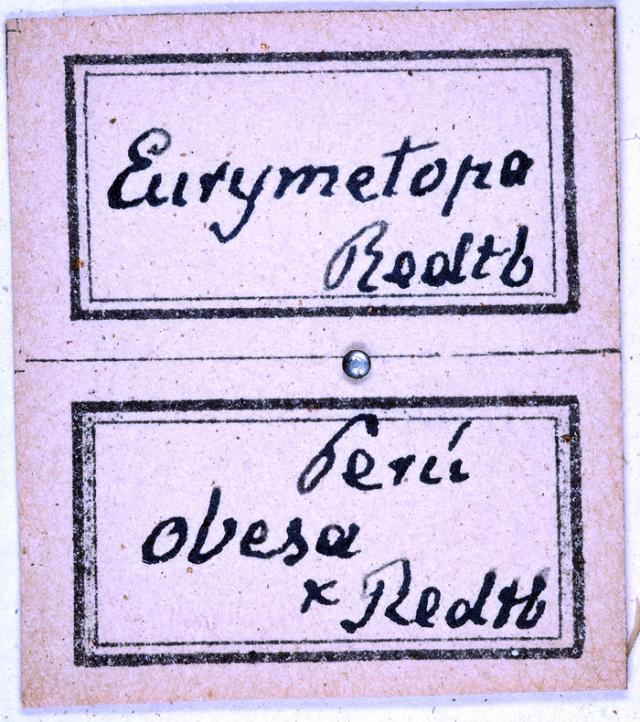 Eurymetopa
Redtb
Perú
obesa
x Redtb